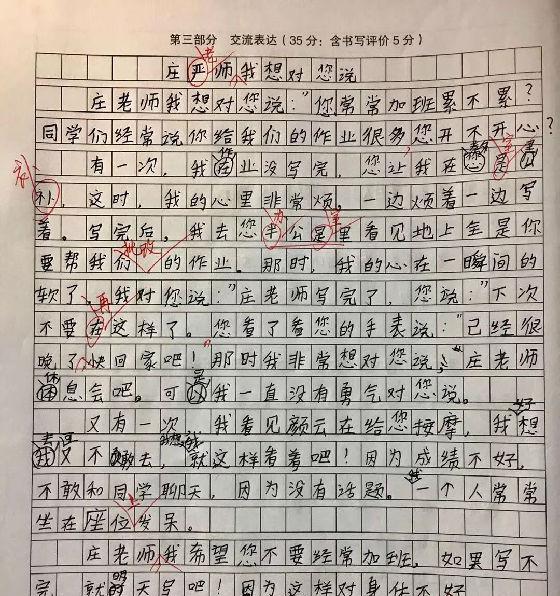 第三部分 交流表达(35分:含书写评价5分)
庄严师我想对您说
老
庄老师我想对您说:“您常常加班累不累?
同学们经常说你给我们的作业很多,您开不开心?
有一次,我因业没写完,您让我在
作
室
补,这时,我的心里非常烦。一边烦着一边写
着。写完后,我去您半公是里看见地上全是你
办 室
要帮我们批改的作业。那时,我的心在一瞬间的
软了,我对您说:“庄老师写完了,您说:”下次
再
不要在这样了。您看了看您的手表说:“已经很
晚了快回家吧!”那时我非常想对您说:“庄老师
休
息会吧。可我一直没有勇气对您说。
是
又有一次 我看见颜云在给您按摩,我想
好
又不敢去,就这样看着吧!因为成绩不好,
不敢和同学聊天,因为没有话题。一个人常常
坐在座位发呆。
上
庄老师我希望您不要经常加班,如果写不
完,就明天写吧!因为这样对身体不好